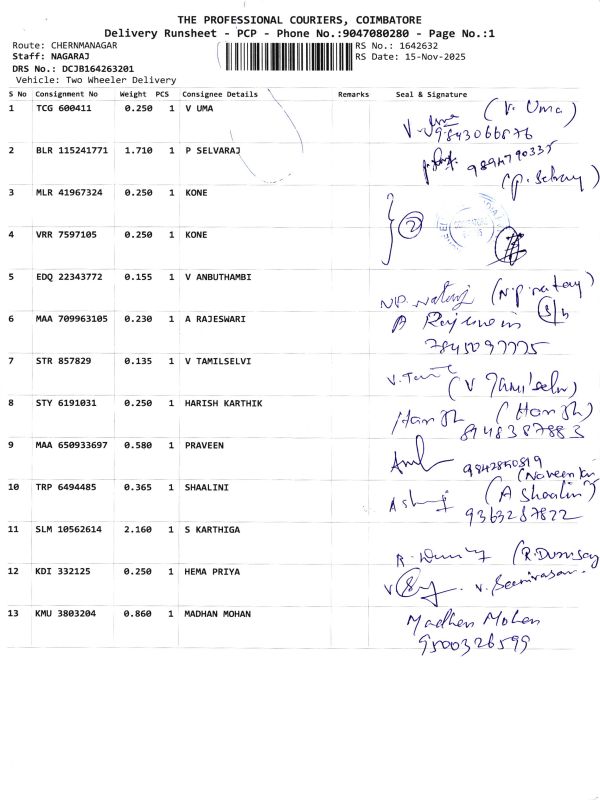 THE PROFESSIONAL COURIERS, COIMBATORE
Delivery Runsheet - PCP - Phone No.:9047080280 - Page No.:1
Route: CHERNMANAGAR RS No.: 1642632
Staff: NAGARAJ RS Date: 15-Nov-2025
DRS No.: DCJB164263201
Vehicle: Two Wheeler Delivery
S No Consignment No Weight PCS Consignee Details Remarks Seal & Signature
1 TCG 600411 0.250 1 V UMA (V. Uma)
9843066876
2 BLR 115241771 1.710 1 P SELVARAJ
(P. Selvaraj)
3 MLR 41967324 0.250 1 KONE
2
4 VRR 7597105 0.250 1 KONE
5 EDQ 22343772 0.155 1 V ANBUTHAMBI
N.P. Nataraj (N.P. Nataraj)
6 MAA 709963105 0.230 1 A RAJESWARI A Rajeswari
7845097775
7 STR 857829 0.135 1 V TAMILSELVI
(V Tamilselvi)
8 STY 6191031 0.250 1 HARISH KARTHIK Harish (Harish)
8148387883
9 MAA 650933697 0.580 1 PRAVEEN
9842850819
10 TRP 6494485 0.365 1 SHAALINI (A Shaalini)
9363287822
11 SLM 10562614 2.160 1 S KARTHIGA
12 KDI 332125 0.250 1 HEMA PRIYA V. Seenivasan
13 KMU 3803204 0.860 1 MADHAN MOHAN Madhan Mohan
9500326599